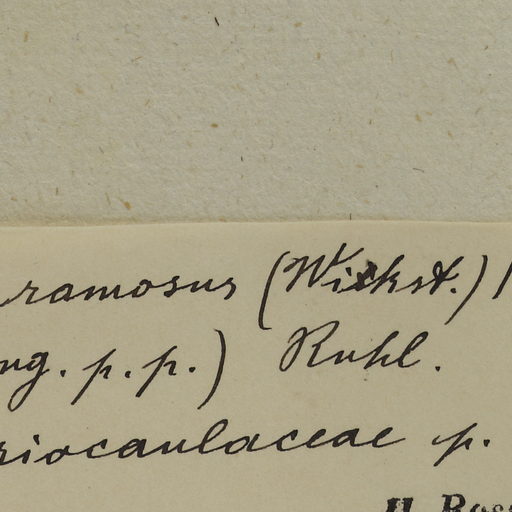 ramosus (Wikst.)
ng. p. p.) Ruhl.
riocaulaceae p.
H. Ross